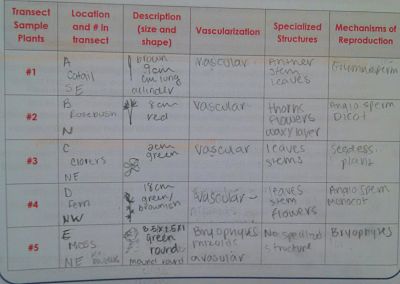 Transect Sample Plants
Location and # in transect
Description (size and shape)
Vascularization
Specialized Structures
Mechanisms of Reproduction
#1
A
Catail
SE
brown
9cm
long
cilinder
Vascular
Anther
stem
leaves
Gymnosperm
#2
B
Rosebush
N
8cm
red
Vascular
thorns
flowers
waxy layer
Angiosperm
Dicot
#3
C
Clovers
NE
2cm
green
Vascular
leaves
stems
Seedless
plant
#4
D
Fern
NW
18cm
green/
brownish
Vascular
leaves
stem
flowers
Angiosperm
Monocot
#5
E
Moss
NE
8.5x2.5x1
green
round
mound round
Bryophytes
rhizoids
avascular
No specilized
structure
Bryophytes